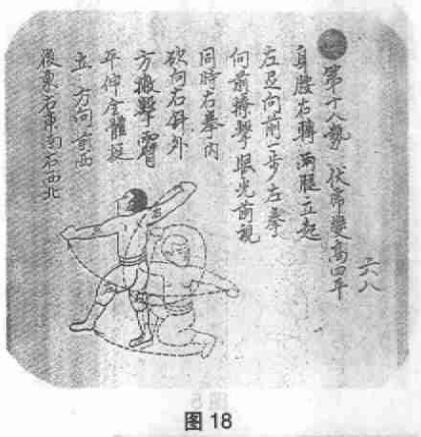 六八
第十八勢 伏虎變高四平
身腰右轉兩腿立起
左足向前一步左拳
向前撩擊眼光前視
同時右拳内
砍向右斜外
方搬擊兩臂
平伸全體挺
立 方向前西
後東右東南右西北
图18